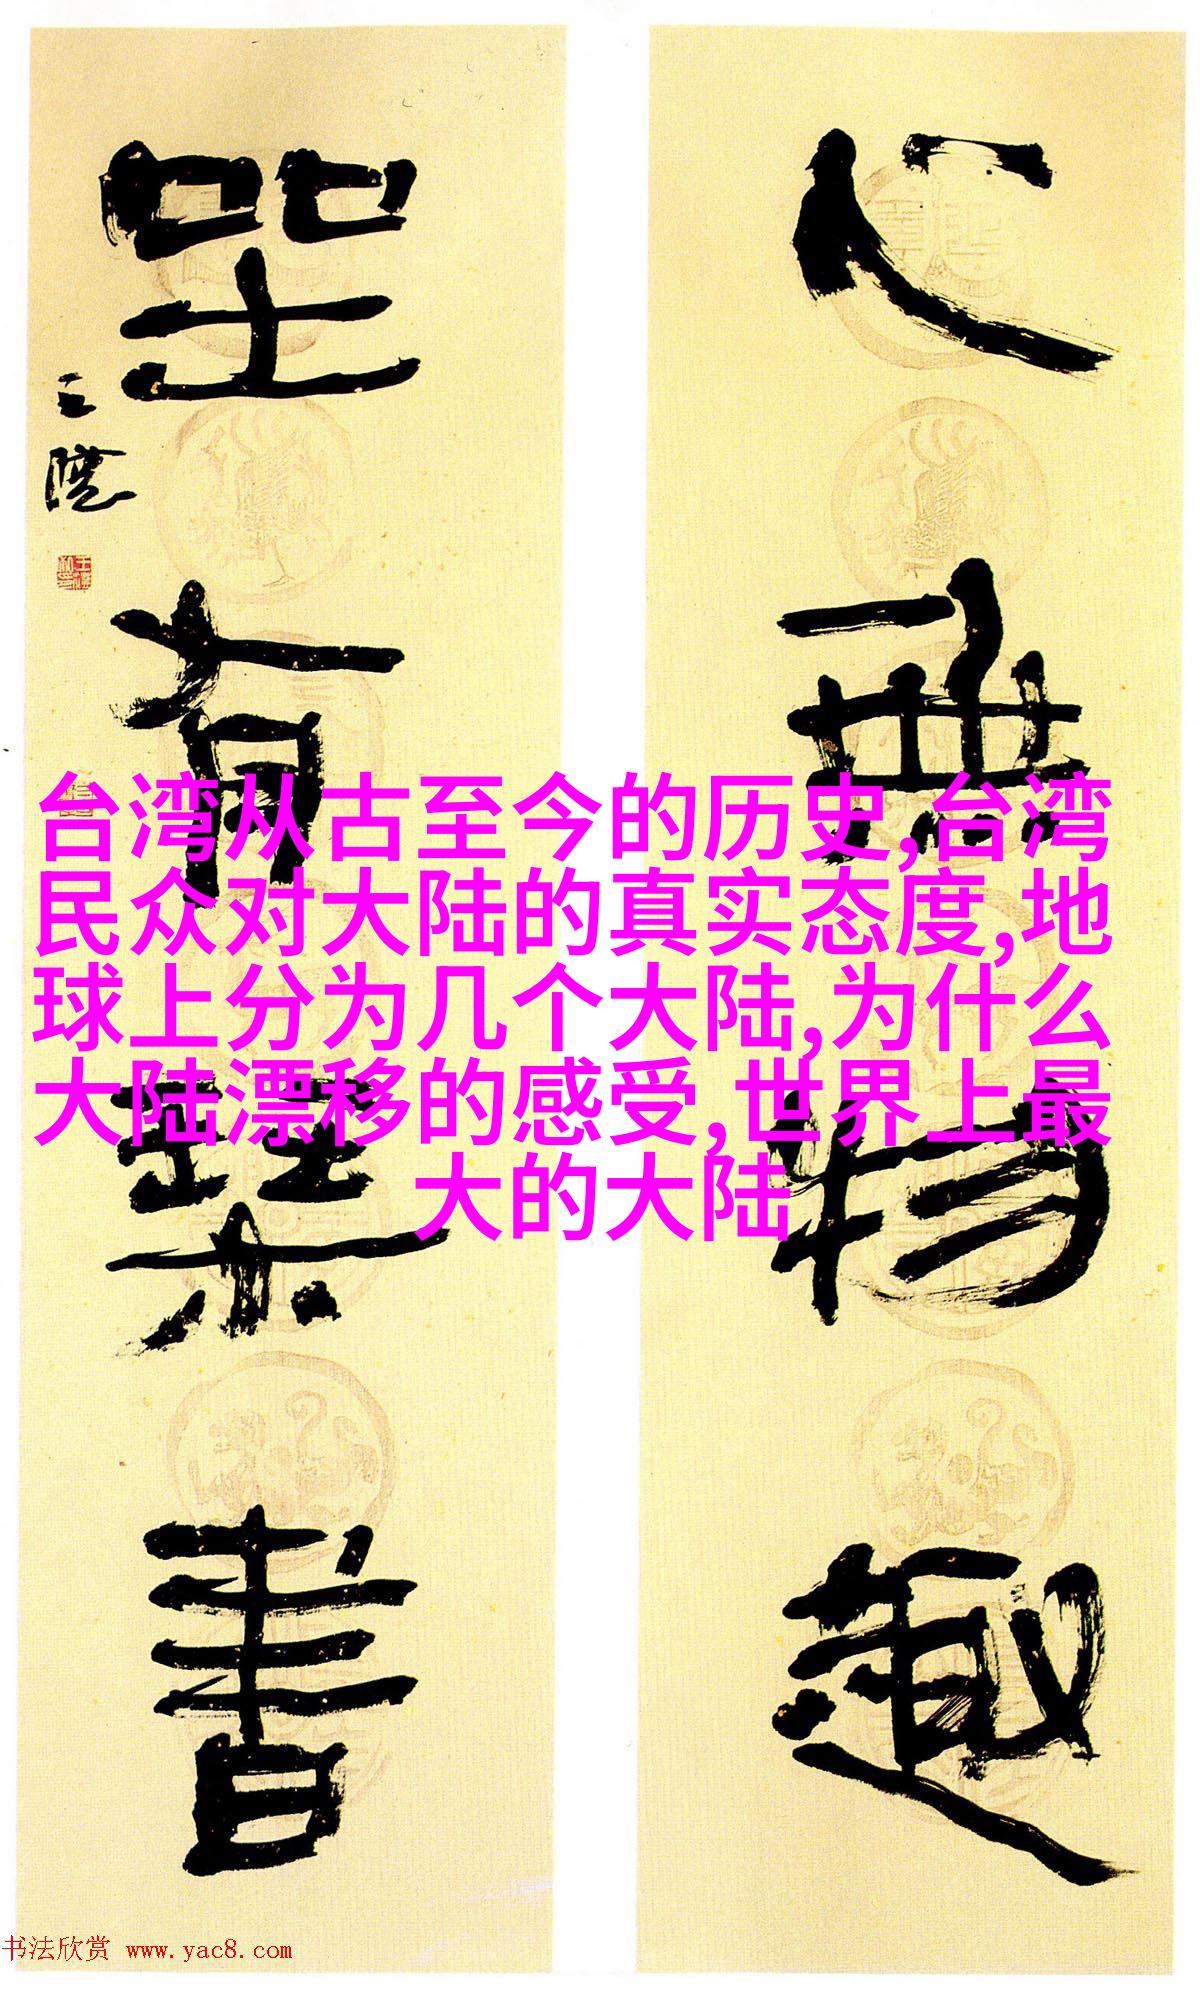 心無物趣
坐有琴書
王镛
台湾从古至今的历史,台湾
民众对大陆的真实态度,地
球上分为几个大陆,为什么
大陆漂移的感受,世界上最
大的大陆
书法欣赏 www.yac8.com